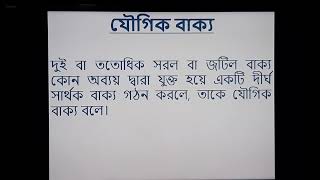 যৌগিক বাক্য
দুই বা ততোধিক সরল বা জটিল বাক্য
কোন অব্যয় দ্বারা যুক্ত হয়ে একটি দীর্ঘ
সার্থক বাক্য গঠন করলে, তাকে যৌগিক
বাক্য বলে।